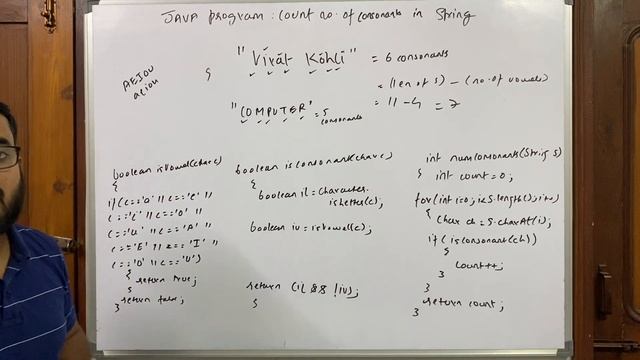 JAVA program: count no. of consonants in String
"Virat Kohli" = 6 consonants
AEIOU
aeiou
= (len of s) - (no. of vowels)
= 11 - 4 = 7
"COMPUTER" = 5
consonants
boolean isVowel(char c)
{
if (c=='a' || c=='e' ||
c=='i' || c=='o' ||
c=='u' || c=='A' ||
c=='E' || c=='I' ||
c=='O' || c=='U')
{
return true;
}
return false;
}
boolean isConsonant(char c)
{
boolean il = Character.
isLetter(c);
boolean iv = isVowel(c);
return (il && !iv);
}
int numConsonants(String s)
{
int count = 0;
for (int i=0; i<s.length(); i++)
{
char ch = s.charAt(i);
if (isConsonant(ch))
{
count++;
}
}
return count;
}